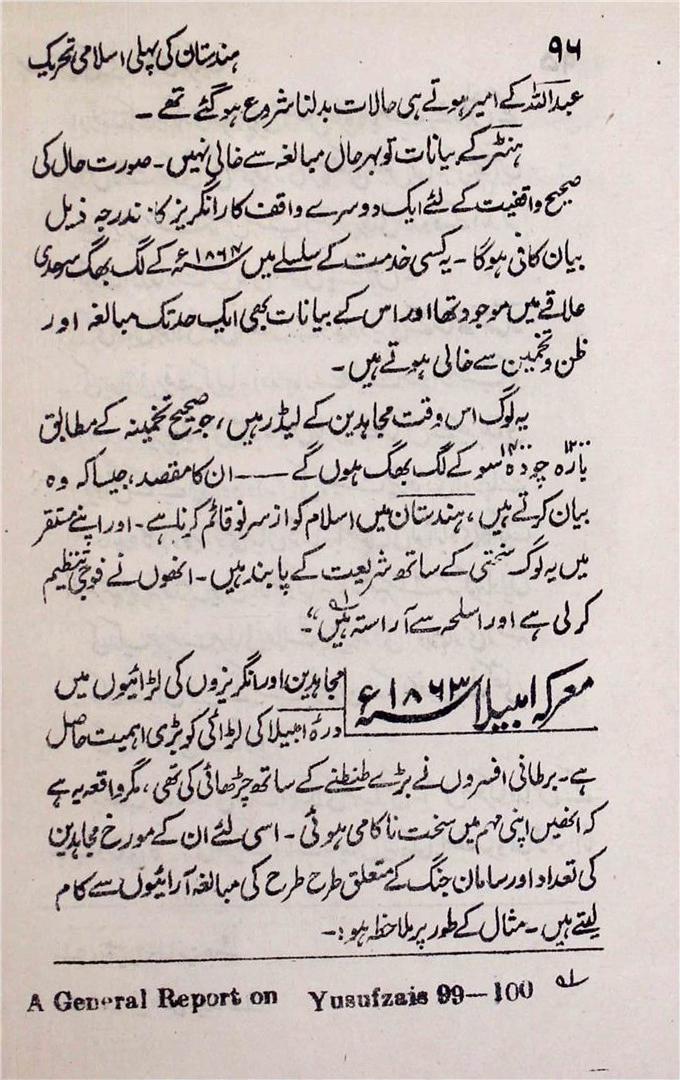 ۹۶
ہندستان کی پہلی اسلامی تحریک
عبداللہ کے امیر ہوتے ہی حالات بدلنا شروع ہو گئے تھے ۔
ہنٹر کے بیانات تو بہر حال مبالغہ سے خالی نہیں ۔ صورت حال کی
صحیح واقفیت کے لئے ایک دوسرے واقف کار انگریز کا مندرجہ ذیل
بیان کافی ہوگا ۔ یہ کسی خدمت کے سلسلے میں ۱۸۶۴ء کے لگ بھگ سرحدی
علاقے میں موجود تھا اور اس کے بیانات بھی ایک حد تک مبالغہ اور
ظن و تخمین سے خالی ہوتے ہیں ۔
یہ لوگ اس وقت مجاہدین کے لیڈر ہیں ، جو صحیح تخمینہ کے مطابق
بارہ ۱۲۰۰ چودہ ۱۴۰۰ سو کے لگ بھگ ہوں گے —— ان کا مقصد ، جیسا کہ وہ
بیان کرتے ہیں ، ہندستان میں اسلام کو از سر نو قائم کرنا ہے ۔ اور اپنے مستقر
میں یہ لوگ سختی کے ساتھ شریعت کے پابند ہیں ۔ انھوں نے فوجی تنظیم
کر لی ہے اور اسلحہ سے آراستہ ہیں ۱؎“۔
معرکہ امبیلا ۱۸۶۳ء
مجاہدین اور انگریزوں کی لڑائیوں میں
درہ امبیلا کی لڑائی کو بڑی اہمیت حاصل
ہے ۔ برطانی افسروں نے بڑے طنطنے کے ساتھ چڑھائی کی تھی ، مگر واقعہ یہ ہے
کہ انھیں اپنی مہم میں سخت ناکامی ہوئی ۔ اسی لئے ان کے مورخ مجاہدین
کی تعداد اور سامان جنگ کے متعلق طرح طرح کی مبالغہ آرائیوں سے کام
لیتے ہیں ۔ مثال کے طور پر ملاحظہ ہو :۔
۱؎ A General Report on Yusufzais 99—100